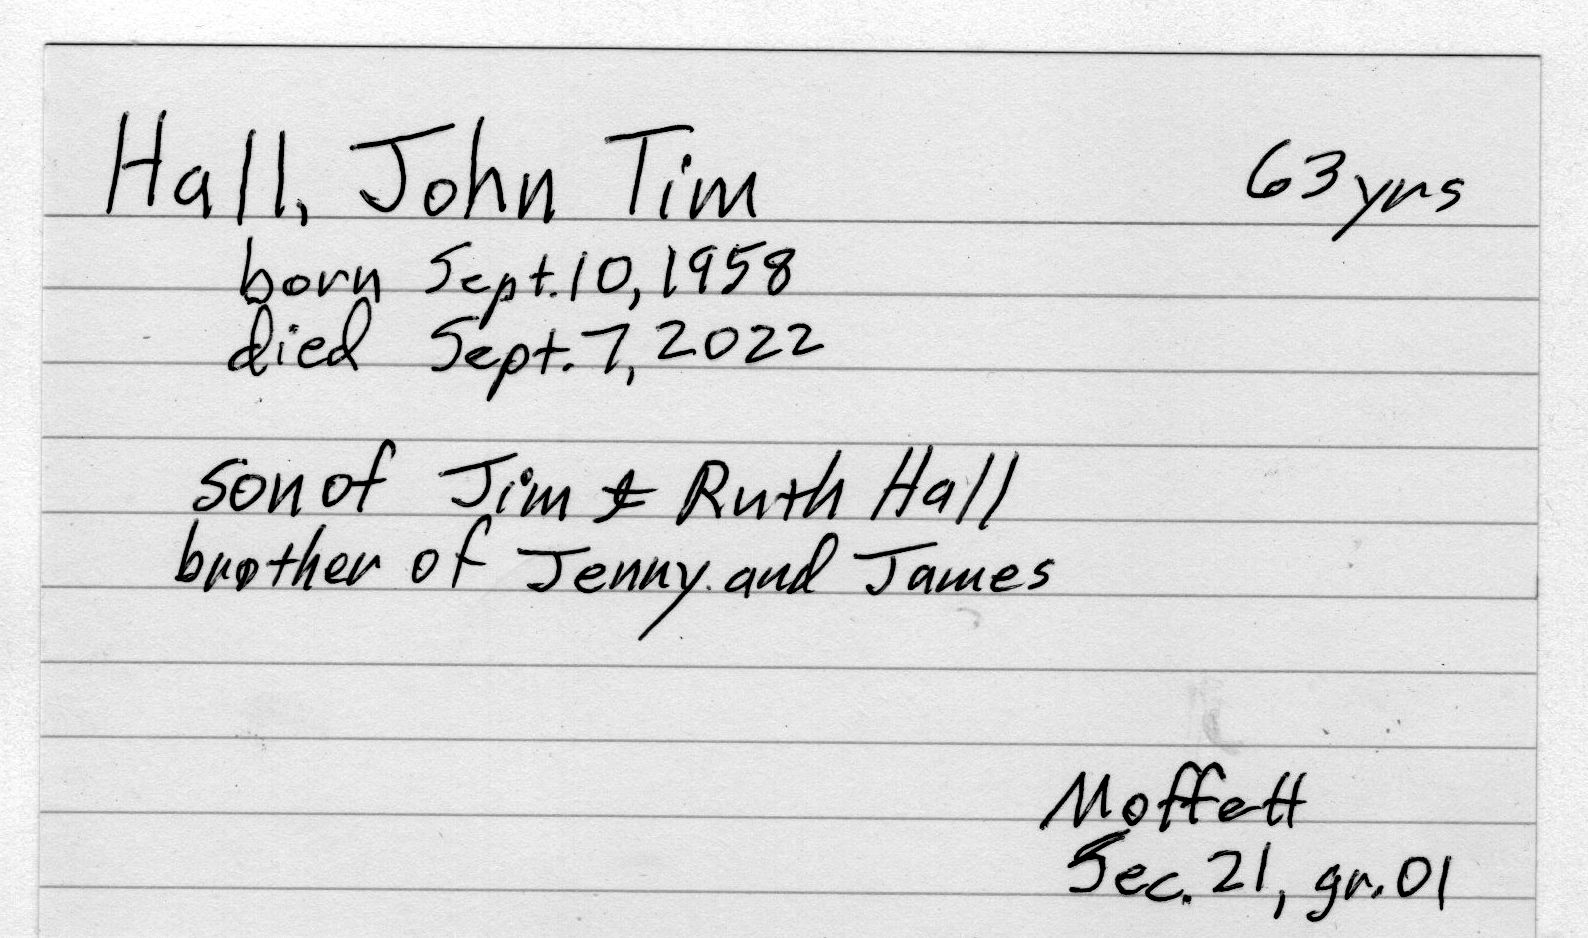 Hall, John Tim 63 yrs
born Sept. 10, 1958
died Sept. 7, 2022
son of Jim & Ruth Hall
brother of Jenny and James
Moffett
Sec. 21, gr. 01